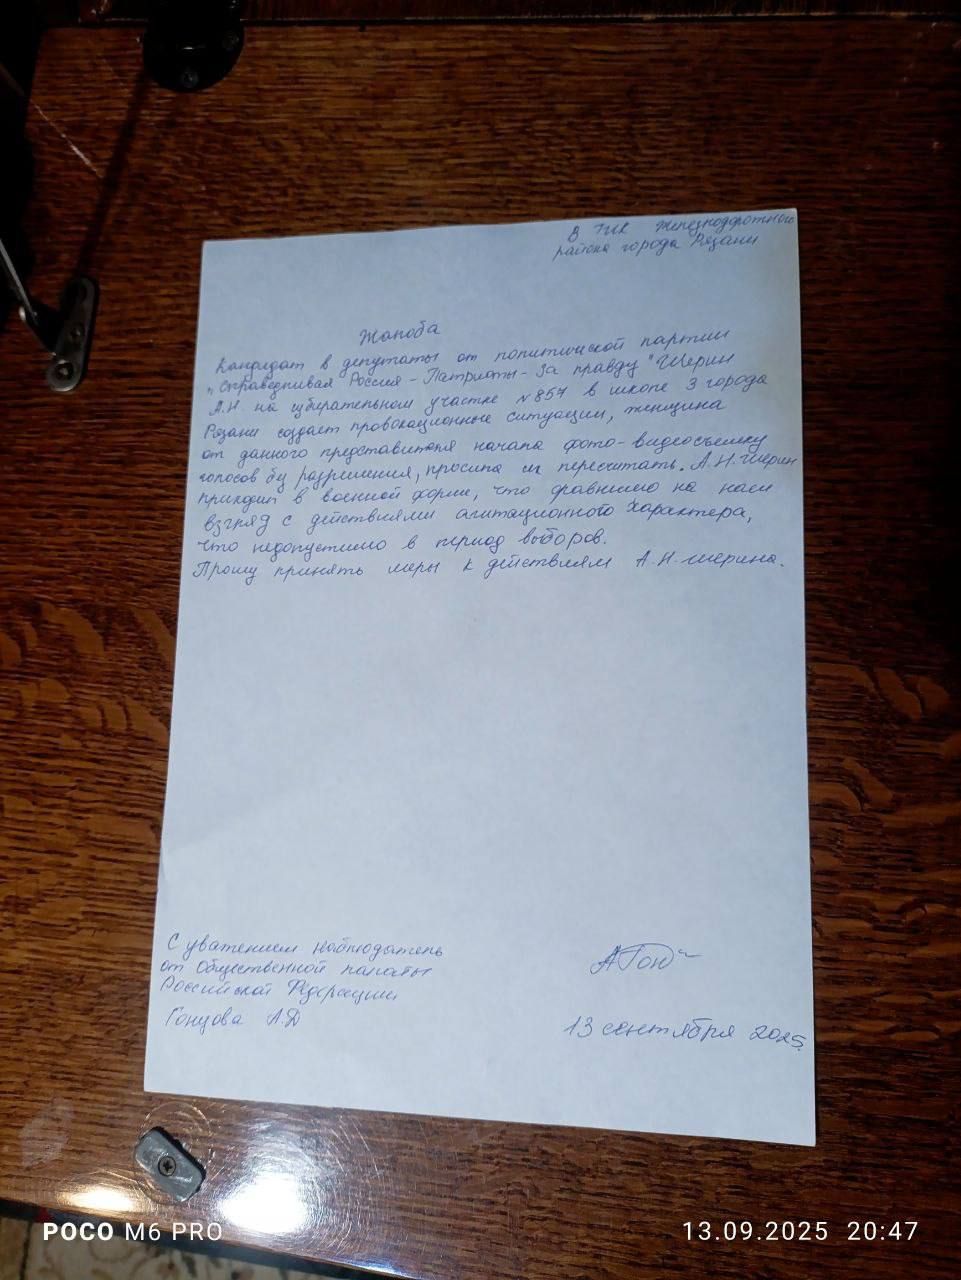 В ТИК Железнодорожного
района города Рязани
Жалоба
Кандидат в депутаты от политической партии
"Справедливая Россия - Патриоты - За правду" Шерин
А.Н. на избирательном участке №857 в школе 3 города
Рязани создает провокационные ситуации, женщина
от данного представителя начала фото-видеосъемку
голосов без разрешения, просила их пересчитать. А.Н. Шерин
приходил в военной форме, что сравнимо на наш
взгляд с действиями агитационного характера,
что недопустимо в период выборов.
Прошу принять меры к действиям А.Н. Шерина.
С уважением наблюдатель
от Общественной палаты
Российской Федерации
Гонцова А.Д
13 сентября 2025.
POCO M6 PRO
13.09.2025 20:47